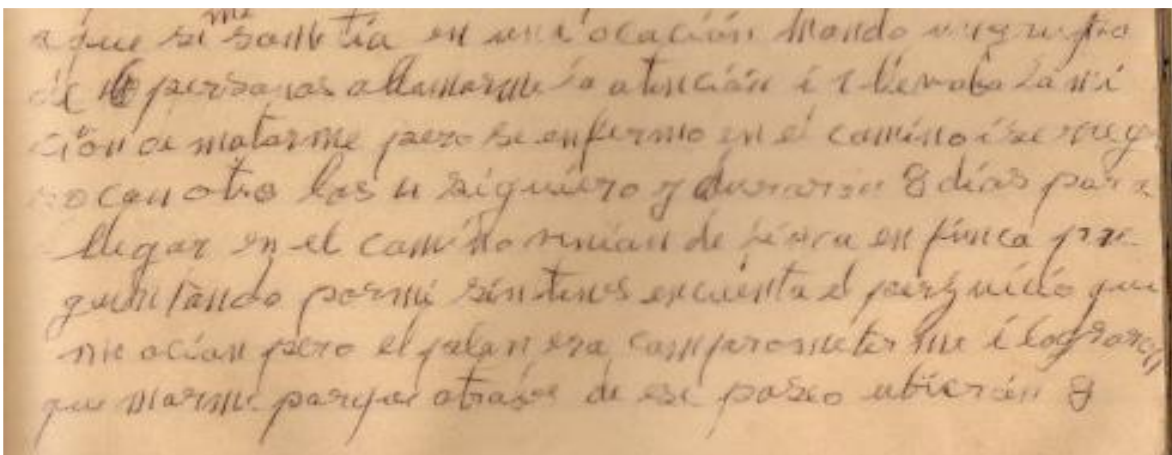 a que si me sometia en una ocación mando un grupo
de 6 personas allamarme la atención i 1 llevaba la mi
ción de matarme pero se enfermo en el camino i se regre
so con otro los 4 siguiero y duraron 8 días para
llegar en el camino venian de finca en finca pre
guntando por mi sin tener encuenta el perjuicio que
me acian pero el plan era comprometerme i lograron
quemarme porque atraves de ese paseo ubieron 8